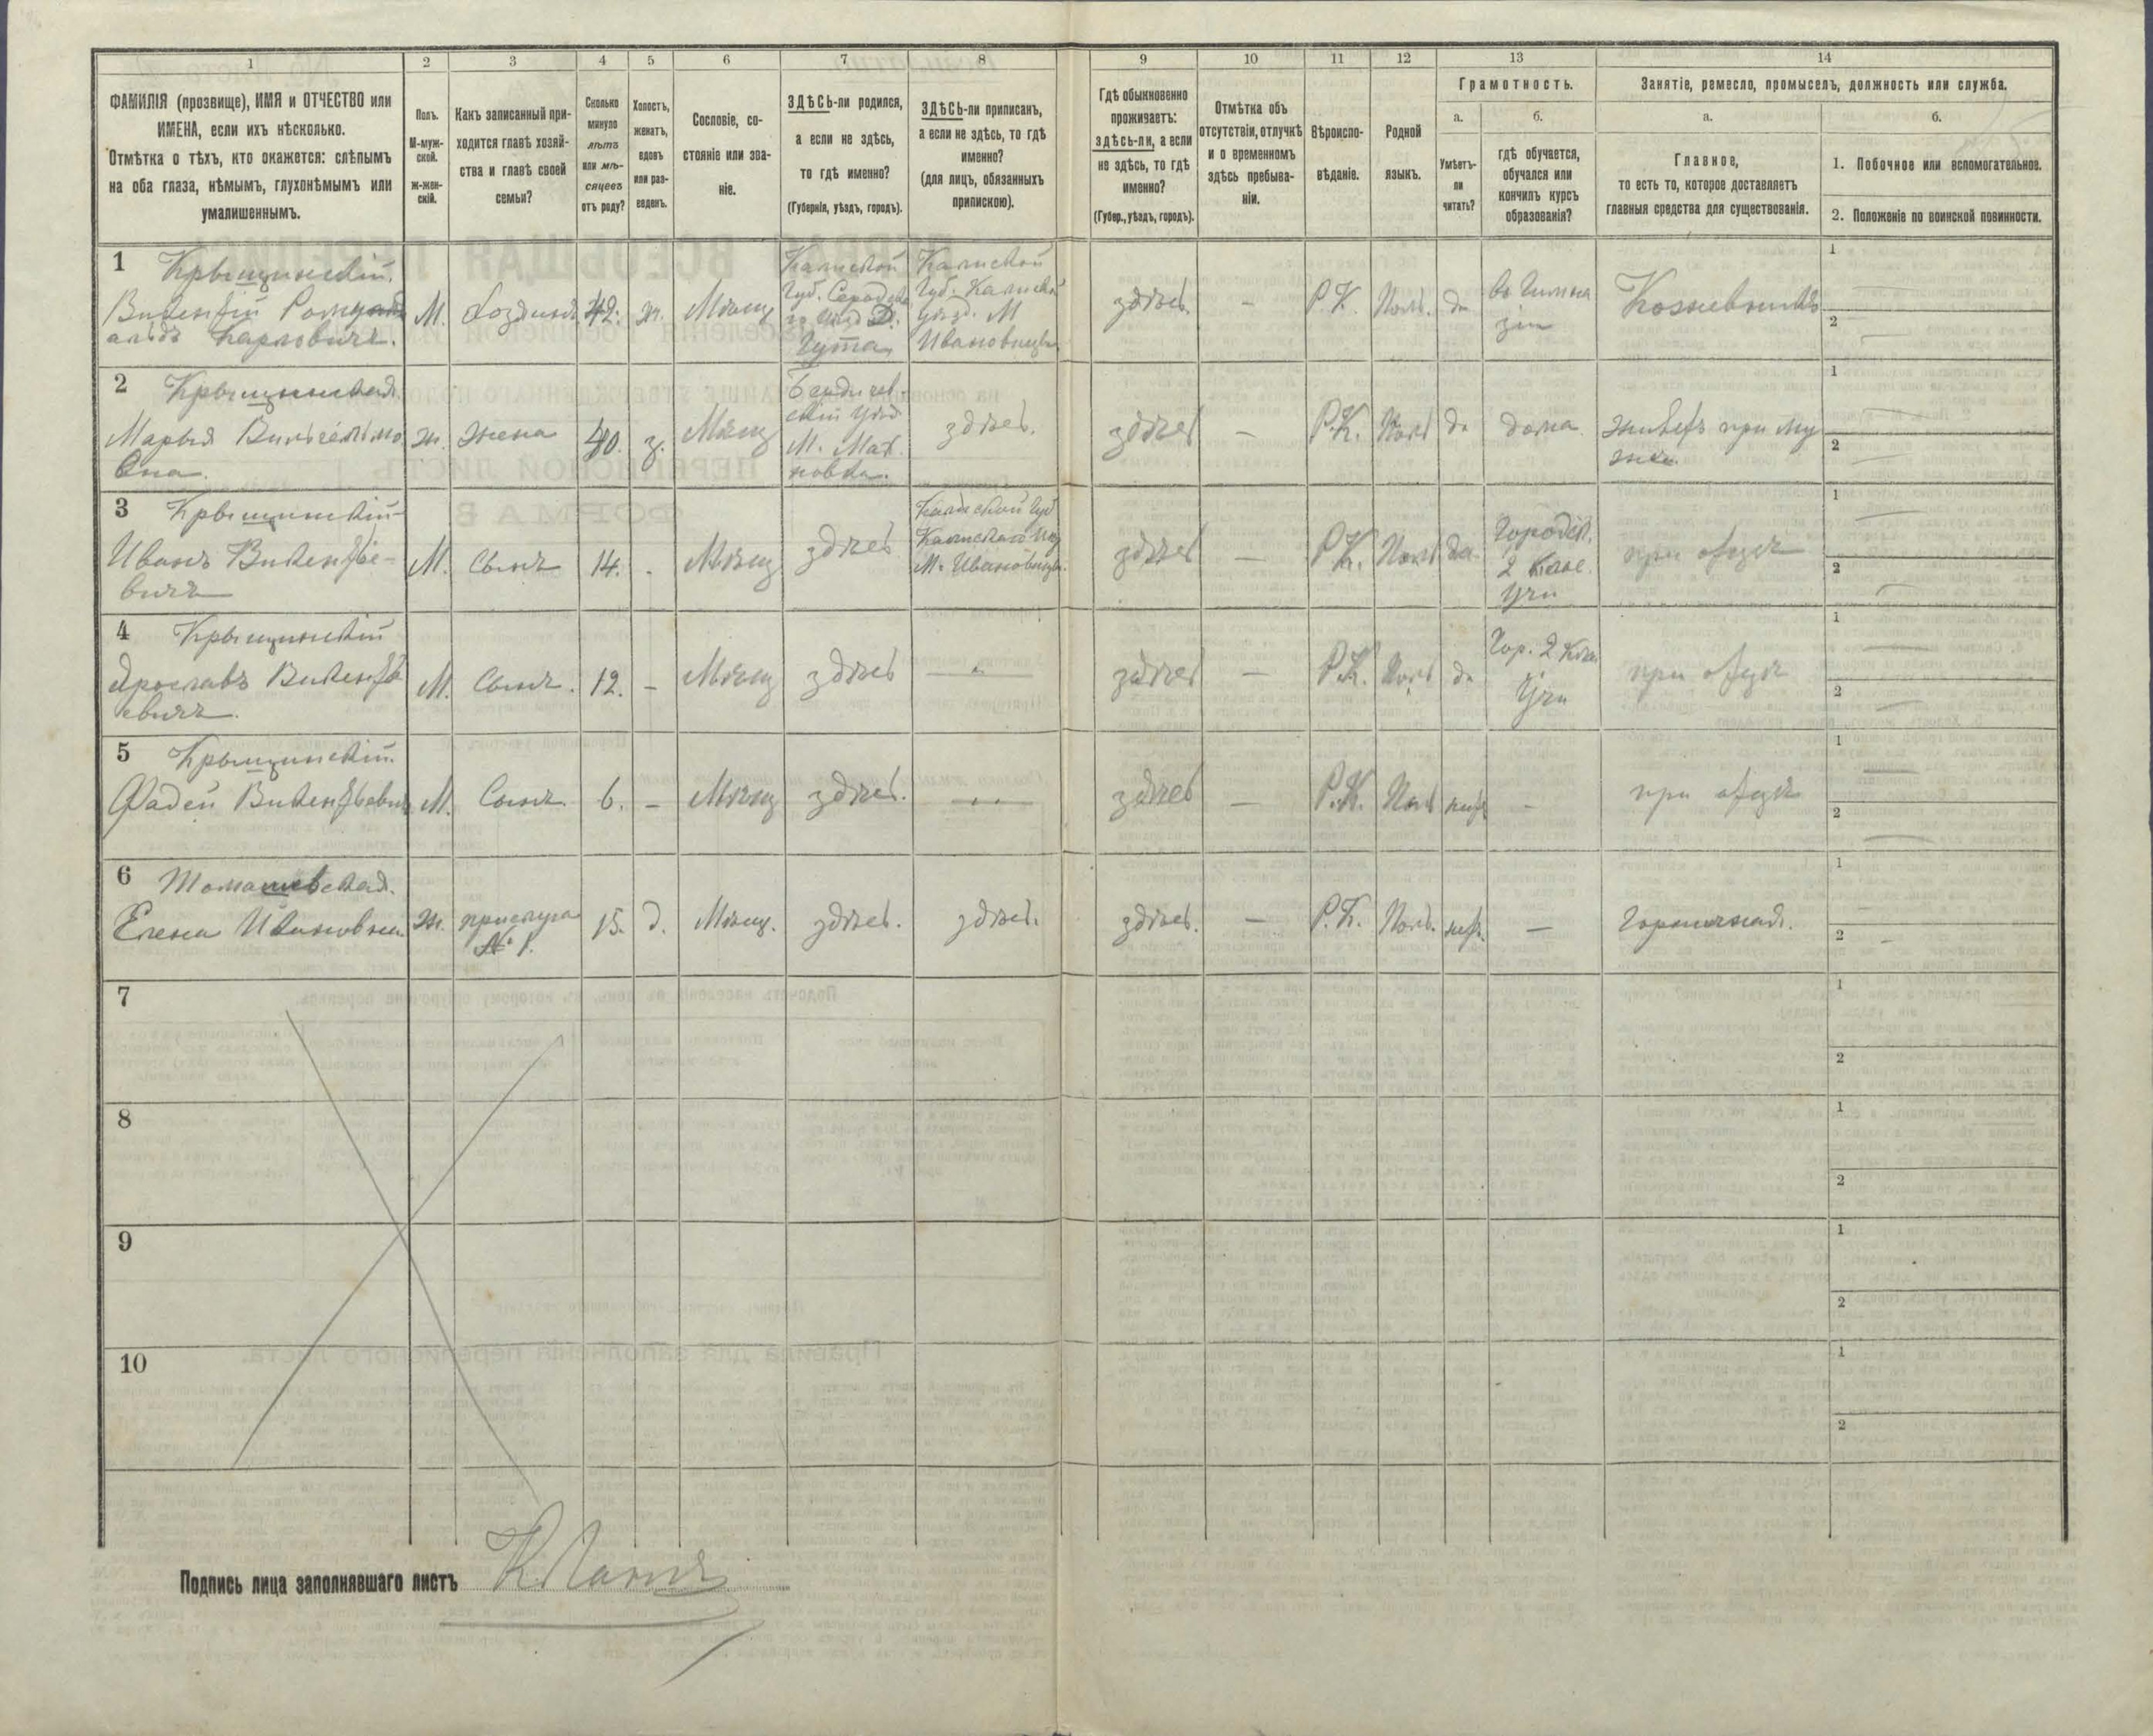 1
2
3
4
5
6
7
8
9
10
11
12
13
14
ФАМИЛІЯ (прозвище), ИМЯ и ОТЧЕСТВО или
ИМЕНА, если ихъ нѣсколько.
Отмѣтка о тѣхъ, кто окажется: слѣпымъ
на оба глаза, нѣмымъ, глухонѣмымъ или
умалишеннымъ.
Полъ.
М-муж-
ской.
Ж-жен-
скій.
Какъ записанный при-
ходится главѣ хозяй-
ства и главѣ своей
семьи?
Сколько
минуло
лѣтъ
или мѣ-
сяцевъ
отъ роду?
Холостъ,
женатъ,
вдовъ
или раз-
веденъ.
Сословіе, со-
стояніе или зва-
ніе.
ЗДѢСЬ-ли родился,
а если не здѣсь,
то гдѣ именно?
(Губернія, уѣздъ, городъ).
ЗДѢСЬ-ли приписанъ,
а если не здѣсь, то гдѣ
именно?
(для лицъ, обязанныхъ
припискою).
Гдѣ обыкновенно
проживаетъ:
здѣсь-ли, а если
не здѣсь, то гдѣ
именно?
(Губер., уѣздъ, городъ).
Отмѣтка объ
отсутствіи, отлучкѣ
и о временномъ
здѣсь пребыва-
ніи.
Вѣроиспо-
вѣданіе.
Родной
языкъ.
Грамотность.
а.
Умѣетъ-
ли
читать?
б.
гдѣ обучается,
обучался или
кончилъ курсъ
образованія?
Занятіе, ремесло, промыселъ, должность или служба.
а.
Главное,
то есть то, которое доставляетъ
главныя средства для существованія.
б.
1. Побочное или вспомогательное.
2. Положеніе по воинской повинности.
1 Крыщинскій.
Викентій Ромуальдъ
Карловичъ.
М.
хозяинъ
42.
ж.
Мѣщ
Калиской
Губ.
Гута
Калиской
Губ. Калиской
Уѣзд. М
Ивановицы
здѣсь.
-
Р.К.
Польс.
да
въ Гимна
зіи
Кожевникъ
1
2
2 Крыщинская
Марья Вильгельмо
вна.
ж.
жена
40.
з.
Мѣщ
Бердичев-
скій Уѣзд
М. Мах
новка.
здѣсь.
здѣсь
-
Р.К.
Польс
да
дома
живетъ при му
жѣ
1
2
3 Крыщинскій
Иванъ Викентье-
вичъ
М.
Сынъ
14.
-
Мѣщ
здѣсь
Калиской Губ
Калискаго Уѣз
М. Ивановицы.
здѣсь
-
Р.К.
Польс
да
Городск.
2 Клас.
Учи
при отцѣ
1
2
4 Крыщинскій
Ярославъ Викентье
евичъ.
М.
Сынъ.
12.
-
Мѣщ
здѣсь
— " —
здѣсь
-
Р.К.
Польс
да
Гор. 2 Клас
Учи
при отцѣ
1
2
5 Крыщинскій.
Фадей Викентьевич
М.
Сынъ.
6.
-
Мѣщ
здѣсь.
— " —
здѣсь
-
Р.К.
Польс
нѣтъ
-
при отцѣ
1
2
6 Томашевская.
Елена Ивановна.
ж.
прислуга
№ 1.
15.
д.
Мѣщ.
здѣсь.
здѣсь.
здѣсь.
-
Р.К.
Польс.
нѣтъ.
-
Горничная.
1
2
7
1
2
8
1
2
9
1
2
10
1
2
Подпись лица заполнявшаго листъ